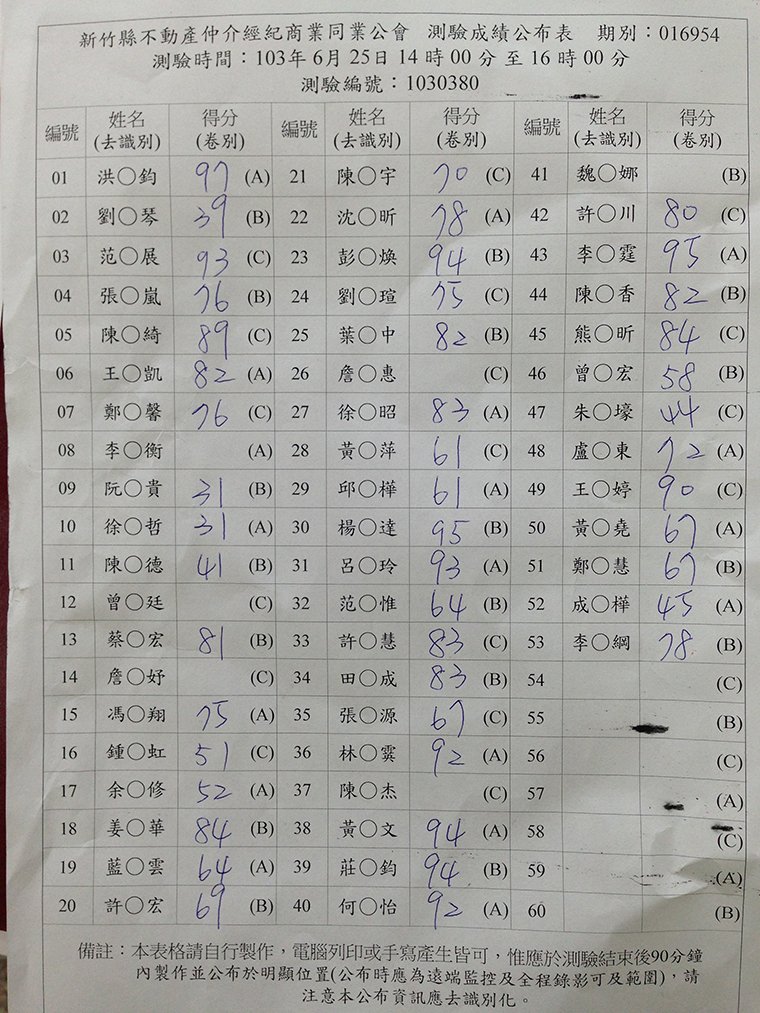 新竹縣不動產仲介經紀商業同業公會 測驗成績公布表 期別：016954
測驗時間：103年6月25日14時00分至16時00分
測驗編號：1030380
編號 姓名(去識別) 得分(卷別) 編號 姓名(去識別) 得分(卷別) 編號 姓名(去識別) 得分(卷別)
01 洪○鈞 97 (A) 21 陳○宇 70 (C) 41 魏○娜 (B)
02 劉○琴 39 (B) 22 沈○昕 78 (A) 42 許○川 80 (C)
03 范○展 93 (C) 23 彭○煥 94 (B) 43 李○霆 95 (A)
04 張○嵐 76 (B) 24 劉○瑄 75 (C) 44 陳○香 82 (B)
05 陳○綺 89 (C) 25 葉○中 82 (B) 45 熊○昕 84 (C)
06 王○凱 82 (A) 26 詹○惠 (C) 46 曾○宏 58 (B)
07 鄭○馨 76 (C) 27 徐○昭 83 (A) 47 朱○壕 44 (C)
08 李○衡 (A) 28 黃○萍 61 (C) 48 盧○東 72 (A)
09 阮○貴 31 (B) 29 邱○樺 61 (A) 49 王○婷 90 (C)
10 徐○哲 31 (A) 30 楊○達 95 (B) 50 黃○堯 67 (A)
11 陳○德 41 (B) 31 呂○玲 93 (A) 51 鄭○慧 67 (B)
12 曾○廷 (C) 32 范○惟 64 (B) 52 成○樺 45 (A)
13 蔡○宏 81 (B) 33 許○慧 83 (C) 53 李○綱 78 (B)
14 詹○妤 (C) 34 田○成 83 (B) 54 (C)
15 馮○翔 75 (A) 35 張○源 67 (C) 55 (B)
16 鍾○虹 51 (C) 36 林○霙 92 (A) 56 (C)
17 余○修 52 (A) 37 陳○杰 (C) 57 (A)
18 姜○華 84 (B) 38 黃○文 94 (A) 58 (C)
19 藍○雲 64 (A) 39 莊○鈞 94 (B) 59 (A)
20 許○宏 69 (B) 40 何○怡 92 (A) 60 (B)
備註：本表格請自行製作，電腦列印或手寫產生皆可，惟應於測驗結束後90分鐘
內製作並公布於明顯位置(公布時應為遠端監控及全程錄影可及範圍)，請
注意本公布資訊應去識別化。